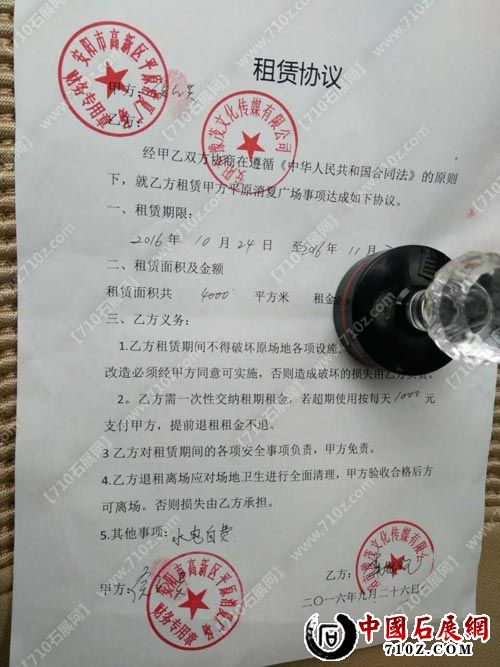 租赁协议
甲方：
乙方：
经甲乙双方协商在遵循《中华人民共和国合同法》的原则
下，就乙方租赁甲方平原消夏广场事项达成如下协议。
一、租赁期限：
2016 年 10 月 24 日 至 2016 年 11 月
二、租赁面积及金额
租赁面积共 4000 平方米 租金
三、乙方义务：
1.乙方租赁期间不得破坏原场地各项设施。
改造必须经甲方同意可实施，否则造成破坏的损失由乙方负责。
2。乙方需一次性交纳租期租金，若超期使用按每天 1000 元
支付甲方，提前退租租金不退。
3 乙方对租赁期间的各项安全事项负责，甲方免责。
4.乙方退租离场应对场地卫生进行全面清理，甲方验收合格后方
可离场。否则损失由乙方承担。
5.其他事项：水电自费
甲方：
乙方：
二〇一六年九月二十六日
安阳市高新区平原消夏广场
财务专用章
豫茂文化传媒有限公司
安阳市高新区平原消夏广场
财务专用章
豫茂文化传媒有限公司
【710石展网】www.710z.com
中國石展網
www.710z.com